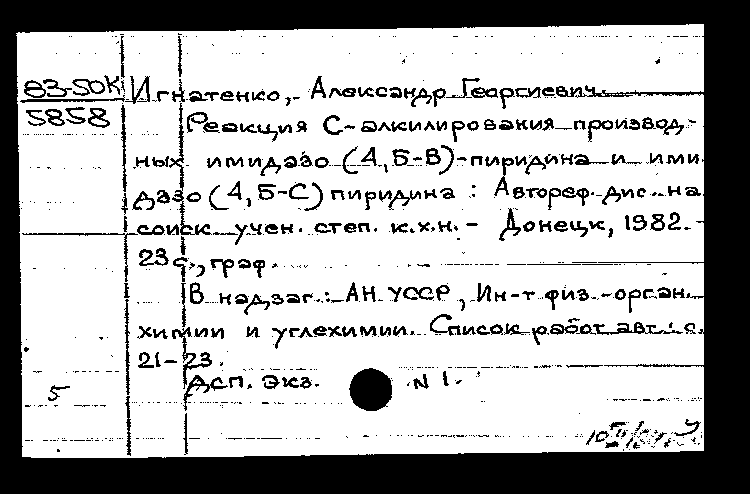 83-50К
5858
Игнатенко, Александр Георгиевич.
Реакция С-алкилирования производ-
ных имидазо (4,5-В)-пиридина и ими
дазо (4,5-С) пиридина : Автореф. дис. на
соиск. учен. степ. к.х.н. - Донецк, 1982. -
23 с., граф.
В надзаг.: АН УССР, Ин-т физ.-орган.
химии и углехимии. Список работ авт.: с.
21-23.
Дсп. Экз. N 1.
5